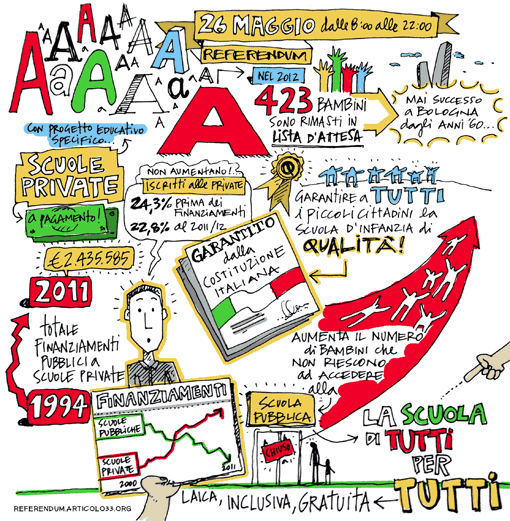 A A A A A A A A A A A
26 MAGGIO dalle 8:00 alle 22:00
REFERENDUM
NEL 2012
423 BAMBINI
SONO RIMASTI IN
LISTA D'ATTESA
MAI SUCCESSO
a BOLOGNA
dagli ANNI '60...
CON PROGETTO EDUCATIVO
SPECIFICO...
SCUOLE
PRIVATE
a PAGAMENTO!
NON AUMENTANO!
ISCRITTI alle PRIVATE
24,3% PRIMA dei
FINANZIAMENTI
22,8% al 2011/12
Q
GARANTIRE a TUTTI
i piccoli CITTADINI la
SCUOLA D'INFANZIA di
QUALITÀ!
GARANTITO
dalla
COSTITUZIONE
ITALIANA
€ 2.435.585
2011
TOTALE
FINANZIAMENTI
PUBBLICI a
SCUOLE PRIVATE
1994
AUMENTA IL NUMERO
di BAMBINI che
NON RIESCONO
ad ACCEDERE
alla
SCUOLA
PUBBLICA
CHIUSO
FINANZIAMENTI
SCUOLE
PUBBLICHE
SCUOLE
PRIVATE
2000
2011
LA SCUOLA
DI TUTTI
PER
TUTTI
LAICA, INCLUSIVA, GRATUITA
REFERENDUM.ARTICOLO33.ORG